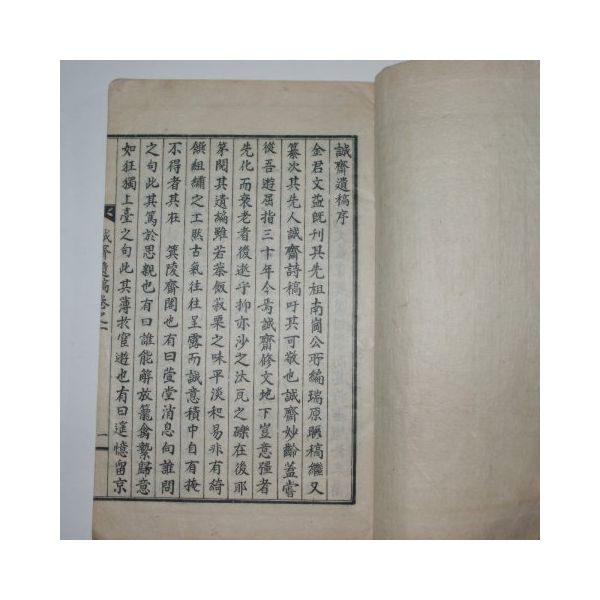 誠齋遺稿序
金君文益旣刊其先祖南崗公所編瑞原聯稿繼又
纂次其先人誠齋詩稿吁其可敬也誠齋妙齡蓋嘗
從吾遊屈指三十年今焉誠齋修文地下豈意彊者
先化而衰老者後逝乎抑亦沙之汰瓦之礫在後耶
第閱其遺編雖若菽粟之味平淡和易非有綺
饌組繡之工然古氣往往呈露而誠意積中自有掩
不得者其在 箕陵齋閣也有曰萱堂消息向誰問
之句此其篤於思親也有曰誰能解放籠禽縶歸意
如狂獨上臺之句此其薄於宦遊也有曰遙憶留京
誠齋遺稿卷之一
一